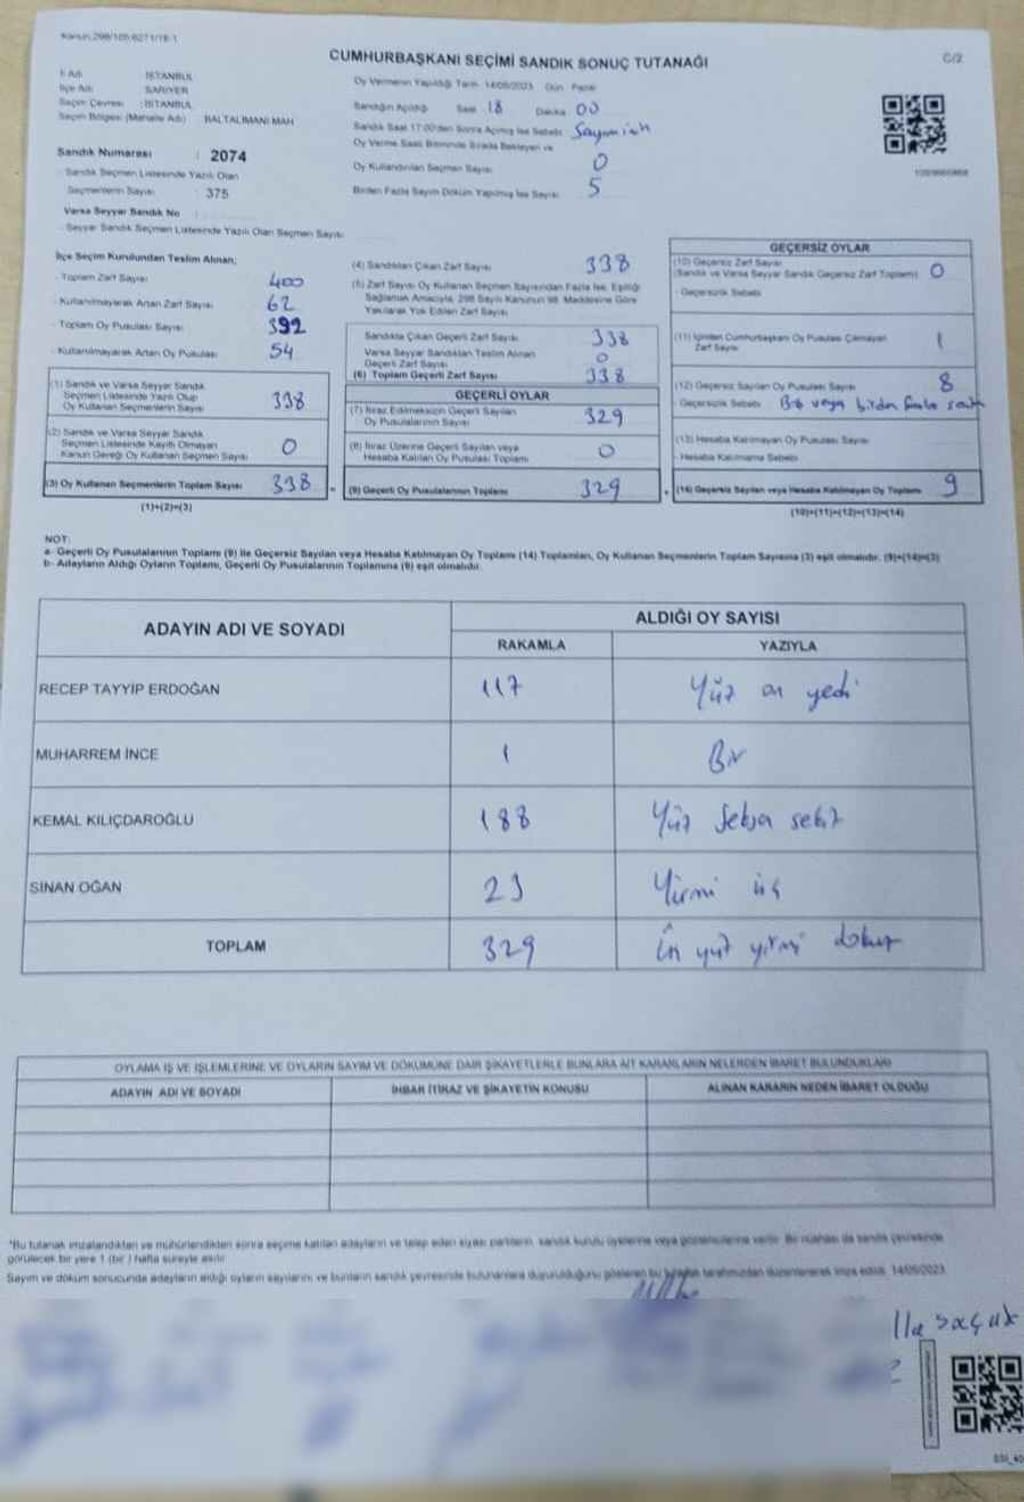 Kanun:298/105;6271/18-1
CUMHURBAŞKANI SEÇİMİ SANDIK SONUÇ TUTANAĞI
C/2
İl Adı : İSTANBUL
İlçe Adı : SARIYER
Seçim Çevresi : İSTANBUL
Seçim Bölgesi (Mahalle Adı) : BALTALİMANI MAH
Oy Vermenin Yapıldığı Tarih 14/05/2023 Gün Pazar
Sandığın Açıldığı Saat 18 Dakika 00
Sandık Saat 17:00'den Sonra Açılmış İse Sebebi
Oy Verme Saati Bitiminde Sırada Bekleyen ve
Oy Kullandırılan Seçmen Sayısı 0
Birden Fazla Sayım Döküm Yapılmış İse Sayısı 5
Sandık Numarası : 2074
Sandık Seçmen Listesinde Yazılı Olan
Seçmenlerin Sayısı : 375
Varsa Seyyar Sandık No
Seyyar Sandık Seçmen Listesinde Yazılı Olan Seçmen Sayısı
İlçe Seçim Kurulundan Teslim Alınan;
- Toplam Zarf Sayısı 400
- Kullanılmayarak Artan Zarf Sayısı 62
- Toplam Oy Pusulası Sayısı 392
- Kullanılmayarak Artan Oy Pusulası 54
(1) Sandık ve Varsa Seyyar Sandık
Seçmen Listesinde Yazılı Olup
Oy Kullanan Seçmenlerin Sayısı 338
(2) Sandık ve Varsa Seyyar Sandık
Seçmen Listesinde Kayıtlı Olmayan
Kanun Gereği Oy Kullanan Seçmen Sayısı 0
(3) Oy Kullanan Seçmenlerin Toplam Sayısı 338
(1)+(2)=(3)
(4) Sandıktan Çıkan Zarf Sayısı 338
(5) Zarf Sayısı Oy Kullanan Seçmen Sayısından Fazla İse, Eşitliği
Sağlamak Amacıyla, 298 Sayılı Kanunun 98. Maddesine Göre
Yakılarak Yok Edilen Zarf Sayısı
Sandıkta Çıkan Geçerli Zarf Sayısı 338
Varsa Seyyar Sandıktan Teslim Alınan
Geçerli Zarf Sayısı 0
(6) Toplam Geçerli Zarf Sayısı 338
GEÇERLİ OYLAR
(7) İtiraz Edilmeksizin Geçerli Sayılan
Oy Pusulalarının Sayısı 329
(8) İtiraz Üzerine Geçerli Sayılan veya
Hesaba Katılan Oy Pusulası Toplamı 0
(9) Geçerli Oy Pusulalarının Toplamı 329
GEÇERSİZ OYLAR
(10) Geçersiz Zarf Sayısı
(Sandık ve Varsa Seyyar Sandık Geçersiz Zarf Toplamı) 0
- Geçersizlik Sebebi
(11) İçinden Cumhurbaşkanı Oy Pusulası Çıkmayan
Zarf Sayısı 1
(12) Geçersiz Sayılan Oy Pusulası Sayısı 8
- Geçersizlik Sebebi veya birden fazla
(13) Hesaba Katılmayan Oy Pusulası Sayısı
- Hesaba Katılmama Sebebi
(14) Geçersiz Sayılan veya Hesaba Katılmayan Oy Toplamı 9
(10)+(11)+(12)+(13)=(14)
NOT:
a- Geçerli Oy Pusulalarının Toplamı (9) ile Geçersiz Sayılan veya Hesaba Katılmayan Oy Toplamı (14) Toplamları, Oy Kullanan Seçmenlerin Toplam Sayısına (3) eşit olmalıdır. (9)+(14)=(3)
b- Adayların Aldığı Oyların Toplamı, Geçerli Oy Pusulalarının Toplamına (9) eşit olmalıdır.
ADAYIN ADI VE SOYADI
ALDIĞI OY SAYISI
RAKAMLA YAZIYLA
RECEP TAYYİP ERDOĞAN 117 Yüz on yedi
MUHARREM İNCE 1 Bir
KEMAL KILIÇDAROĞLU 188 Yüz seksen sekiz
SİNAN OĞAN 23 Yirmi üç
TOPLAM 329 Üç yüz yirmi dokuz
OYLAMA İŞ VE İŞLEMLERİNE VE OYLARIN SAYIM VE DÖKÜMÜNE DAİR ŞİKAYETLERLE BUNLARA AİT KARARLARIN NELERDEN İBARET BULUNDUKLARI
ADAYIN ADI VE SOYADI
İHBAR İTİRAZ VE ŞİKAYETİN KONUSU
ALINAN KARARIN NEDEN İBARET OLDUĞU
*Bu tutanak imzalandıktan ve mühürlendikten sonra seçime katılan adayların ve talep eden siyasi partilerin, sandık kurulu üyelerine veya gözlemcilerine verilir. Bir nüshası da sandık çevresinde
görülecek bir yere 1 (bir) hafta süreyle asılır.
Sayım ve döküm sonucunda adayların aldığı oyların sayılarını ve bunların sandık çevresinde bulunanlara duyurulduğunu gösteren bu tutanak tarafımızdan düzenlenerek imza edildi. 14/05/2023